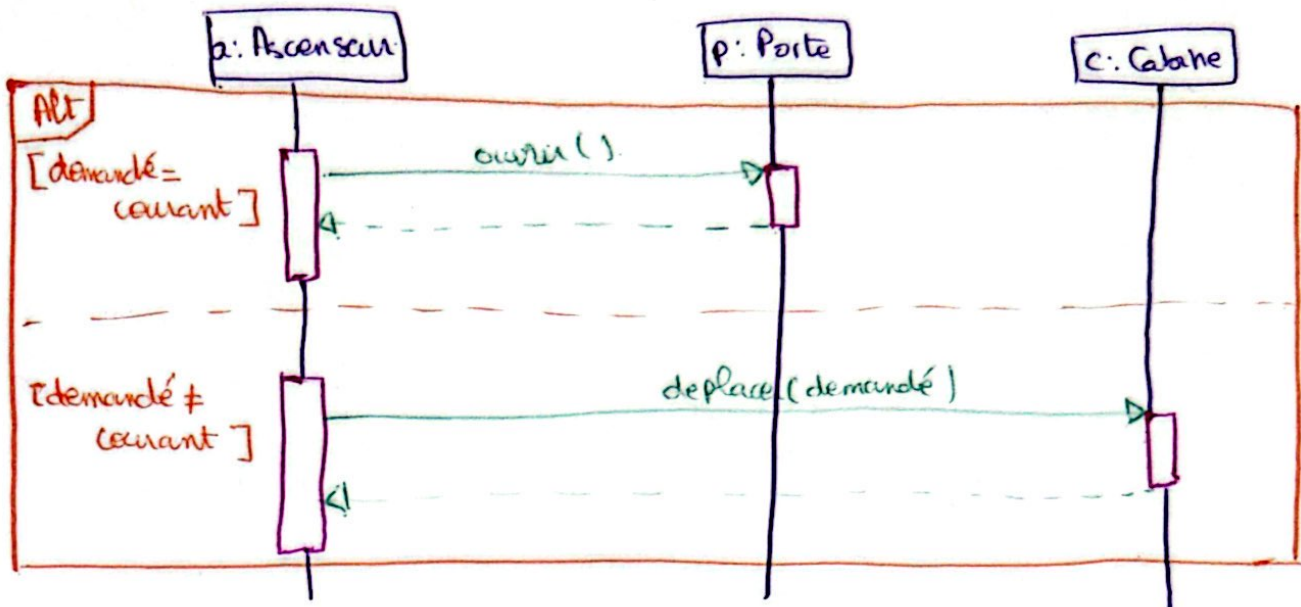 a: Ascenseur
p: Porte
c: Cabane
Alt
[demandé =
courant ]
ouvrir ( )
[demandé ≠
courant ]
deplacer (demandé)